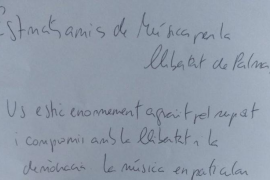 Estimats amis de Música per la
llibertat de Palma
Us estic enormement agraït pel suport
i compromís amb la llibertat i la
democràcia la música en particular